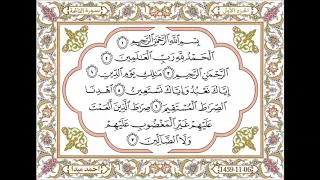 الجزء الأول سورة الفاتحة
بِسْمِ اللَّهِ الرَّحْمَٰنِ الرَّحِيمِ ١
الْحَمْدُ لِلَّهِ رَبِّ الْعَالَمِينَ ٢
الرَّحْمَٰنِ الرَّحِيمِ ٣ مَالِكِ يَوْمِ الدِّينِ ٤
إِيَّاكَ نَعْبُدُ وَإِيَّاكَ نَسْتَعِينُ ٥ اهْدِنَا
الصِّرَاطَ الْمُسْتَقِيمَ ٦ صِرَاطَ الَّذِينَ أَنْعَمْتَ
عَلَيْهِمْ غَيْرِ الْمَغْضُوبِ عَلَيْهِمْ
وَلَا الضَّالِّينَ ٧
احمد عبدا 1439-11-06